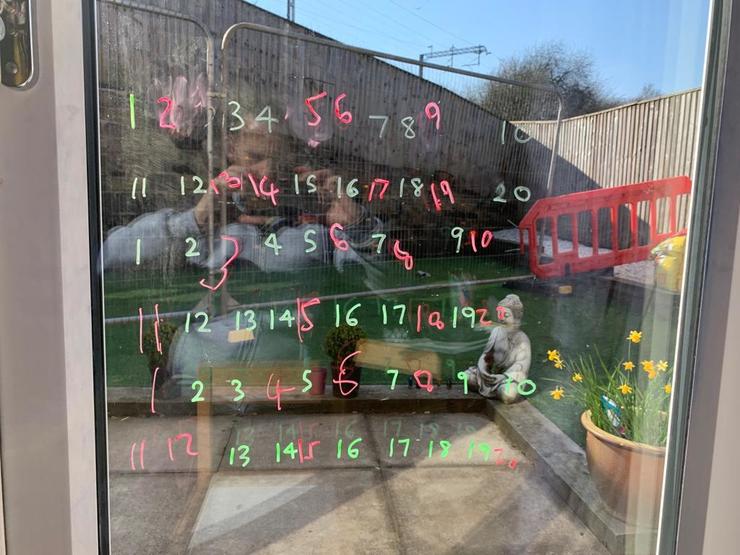 1 2 3 4 5 6 7 8 9 10
11 12 13 14 15 16 17 18 19 20
1 2 3 4 5 6 7 8 9 10
11 12 13 14 15 16 17 18 19 20
1 2 3 4 5 6 7 8 9 10
11 12 13 14 15 16 17 18 19 20